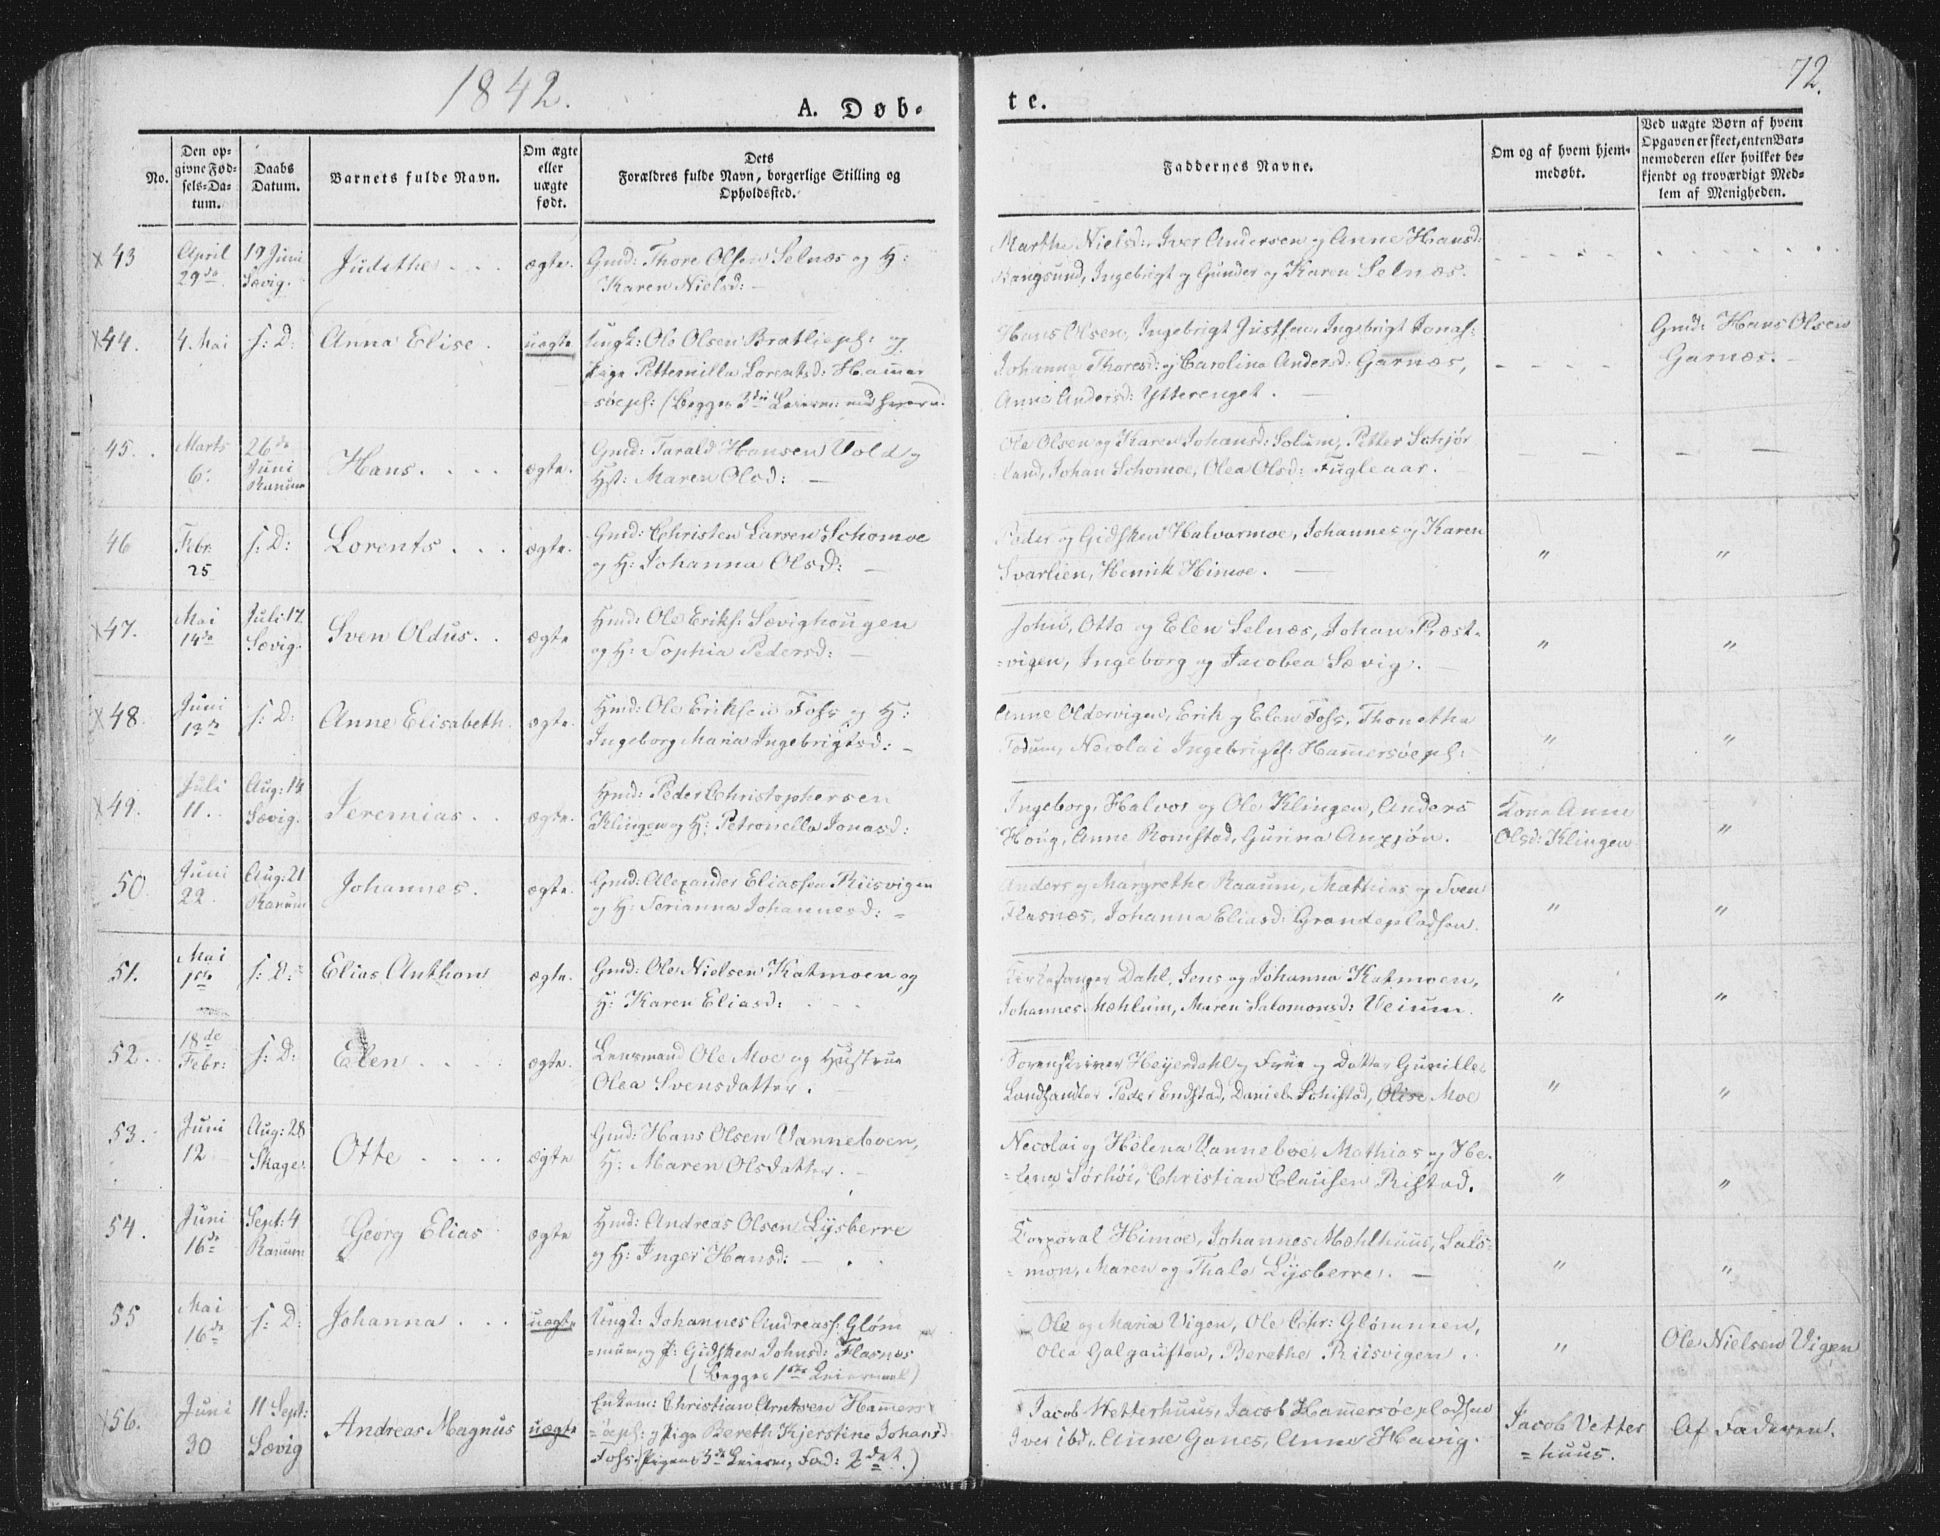 1842.
72.
A. Døb-
te.
No.
Den op-
givne Fød-
sels-Da-
tum.
Daabs
Datum.
Barnets fulde Navn.
Om ægte
eller
uægte
født.
Dets
Forældres fulde Navn, borgerlige Stilling og
Opholdssted.
Faddernes Navne.
Om og af hvem hjem-
medøbt.
Ved uægte Børn af hvem
Opgaven er skeet, enten Bar-
nemoderen eller hvilket be-
kjendt og troværdigt Med-
lem af Menigheden.
x 43
April
29de
19 Juni
Sævig.
Judithe
ægte.
Gmd: Thore Olsen Selnæs og H:
Karen Nielsd:
Marthe Nielsd:, Iver Andersen og Anne Hansd:
Bangsund, Ingebrigt og Gunder og Karen Selnæs.
x 44.
4 Mai
s: D:
Anna Elise.
uægte
Ungk: Ole Olsen Bratliepl: og
Pige Pettemilla Lorentsd: Hammer
søepl: (Begges 3die Leierm: med hver
Hans Olsen, Ingebrigt Justsen, Ingebrigt Jonas:
Johanna Thoresd: og Carolina Andersd: Garnæs,
Anne Andersd: Ytterenget.
Gmd: Hans Olsen
Garnæs.
45.
Marts
6.
26de
Juni
Ranum
Hans.
ægte.
Gmd: Tarald Hansen Vold og
Hst: Maren Olsd:
Ole Olsen og Karen Johansd: Solum, Petter Schjør
land, Johan Schomoe, Olea Olsd: Fugleaar.
46
Febr.
25
s: D:
Lorents
ægte.
Gmd: Christen Larsen Schomoe
og H: Johanna Olsd:
Peder og Gidsken Halvarmoe, Johannes og Karen
Svarlien, Henrik Himoe.
"
"
x 47.
Mai
14de
Juli 17.
Sævig.
Sven Oldus.
ægte
Hmd: Ole Eriks: Sævighougen
og H: Sophia Pedersd:
John, Otto og Elen Selnæs, Johan Præst-
=vigen, Ingeborg og Jacobea Sævig.
"
"
x 48.
Juni
13de
s: D:
Anne Elisabeth.
ægte.
Hmd: Ole Eriksen Foss og H:
Ingeborg Maria Ingebrigtsd:
Anne Oldervigen, Erik og Elen Foss, Thonetha
Fodum, Necolai Ingebrigts: Hammersøepl:
"
"
x 49.
Juli
11.
Aug: 14
Sævig.
Jeremias.
ægte.
Hmd: Peder Christophersen
Klingen og H: Petronella Jonasd:
Ingeborg, Halvor og Ole Klingen, Anders
Houg, Anne Romstad, Gurina Anzjøn.
Kone Anne
Olsd: Klingen
"
50.
Juni
22.
Aug: 21
Ranum
Johannes.
ægte.
Gmd: Alexander Eliassen Riisvigen
og H: Serianna Johannesd:
Anders og Margrethe Raaum, Mathias og Sven
Flasnæs, Johanna Eliasd: Grandepladsen.
"
"
51.
Mai
1ste
s: D:
Elias Anthon
ægte.
Gmd: Ole Nielsen Katmoen og
H: Karen Eliasd:
Kirkesanger Dahl, Jens og Johanna Katmoen,
Johannes Mæhlum, Maren Salomonsd: Veium.
"
"
52.
18de
Febr:
s: D:
Elen
ægte.
Lensmand Ole Moe og Hustrue
Olea Svensdatter.
Sorenskriver Heyerdahl og Frue og Datter Gunille,
Landhandler Peder Endstad, Daniel Schistad, Olise Moe
"
"
53.
Juni
12
Aug: 28
Skage.
Otte
ægte
Gmd: Hans Olsen Vanneboen,
H: Maren Olsdatter.
Necolai og Helena Vanneboe, Mathias og He-
=lena Sørhøi, Christian Clausen Ristad.
"
"
54.
Juni
16de
Sept: 4
Ranum
Georg Elias
ægte
Hmd: Andreas Olsen Lysberre
og H: Inger Hansd:
Korporal Himoe, Johannes Mæhlhuus, Salo-
=mon, Maren og Thale Lysberre.
"
"
55
Mai
16de
s: D:
Johanna
uægte
Ungk: Johannes Andreass: Gløm
=mum, og P: Gidsken Johnsd: Flasnæs
(Begges 1ste Leiermaal)
Ole og Maria Vigen, Ole Chr: Glømmen,
Olea Galgauften, Berethe Riisvigen.
"
Ole Nielsen Vigen
x 56.
Juni
30
11 Sept:
Sævig
Andreas Magnus
uægte
Enkem: Christian Arntsen Hammer
søepl: og Pige Bereth Kjerstine Johansd:
Foss (Pigens 3die Leierm, Fad: 2det.)
Jacob Vetterhuus, Jacob Hammersøepladsen
Iver ibd., Anne Ganes, Anne Havig.
Jacob Vetter
=huus.
Af Faderen.